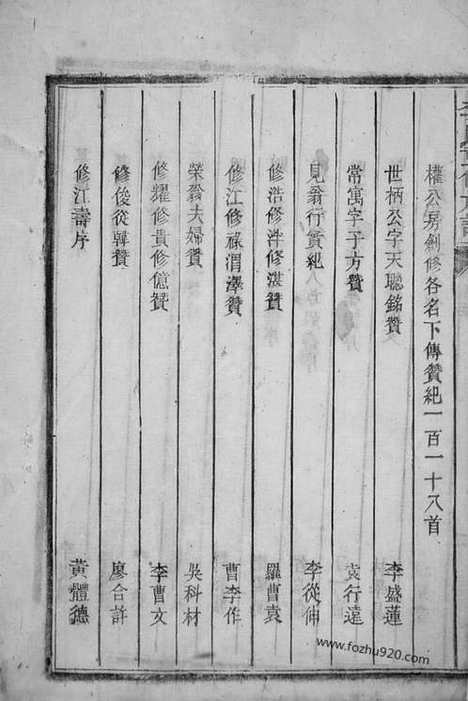 權公房創修各名下傳贊紀一百一十八首
世柄公字天聰銘贊 李盛蓮
常寓字子方贊 袁行遠
見翁行實紀 李從伸
修浩修泮修湛贊 羅曹袁
修江修祿渭澤贊 曹李作
榮翁夫婦贊 吳科材
修耀修貴修億贊 李曹文
修俊從韓贊 廖合許
修江壽序 黃體德
www.fozhu920.com